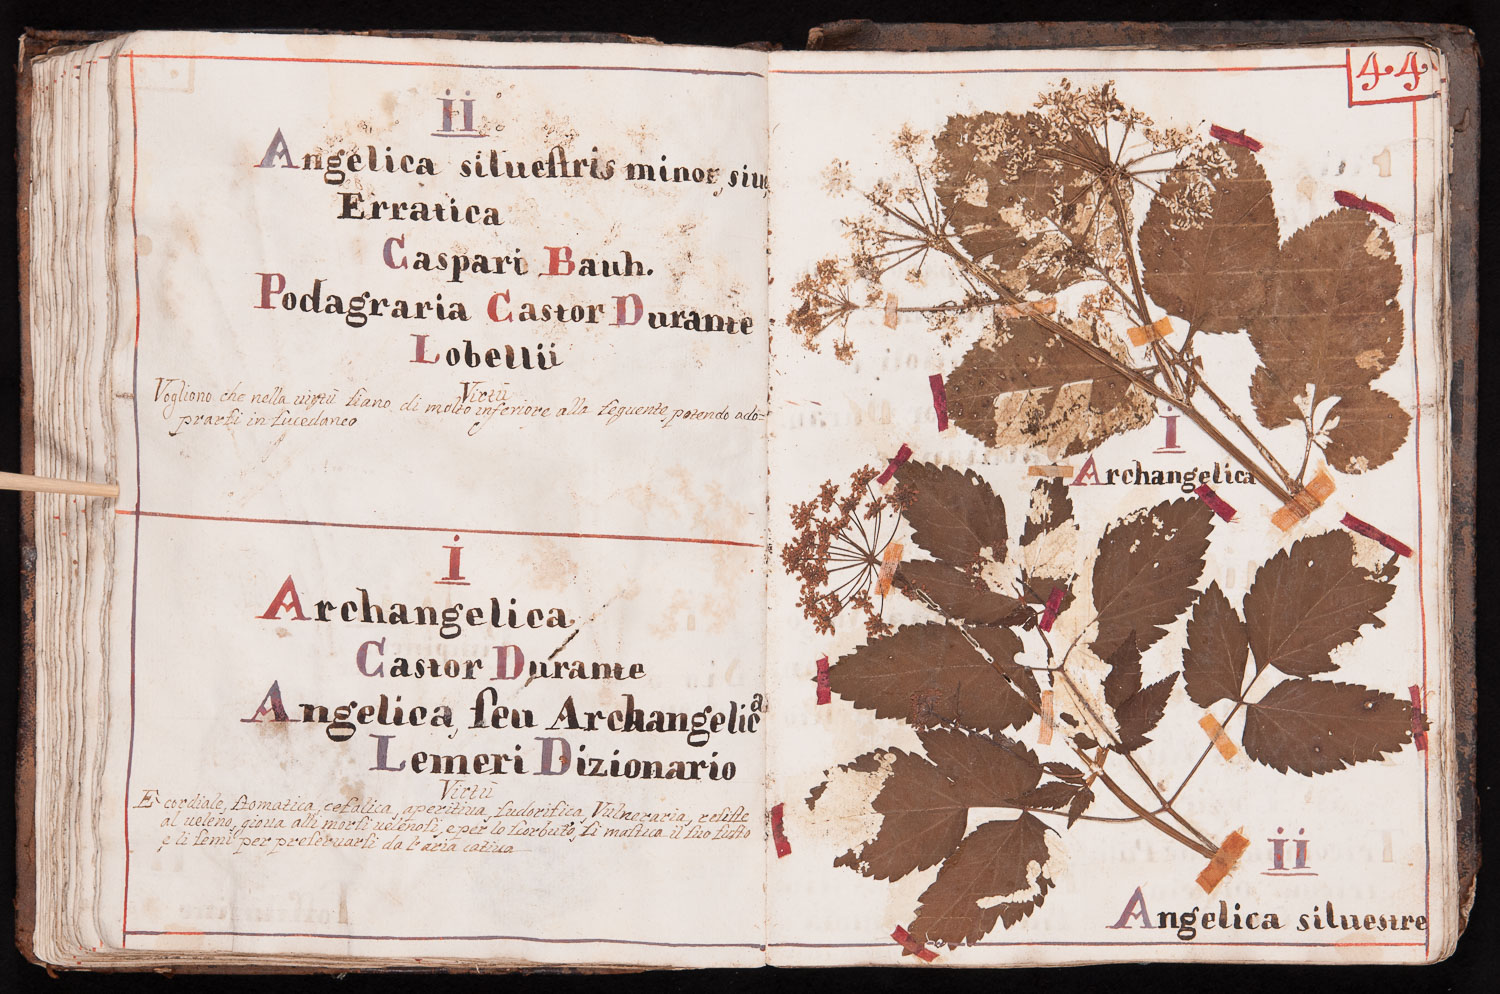 ii
Angelica siluestris minor, siue
Erratica
Caspari Bauh.
Podagraria Castor Durante
Lobellii
Virtù
Vogliono che nella uirtù siano di molto inferiore alla seguente, potendo ado=
prarsi in sucedaneo
i
Archangelica
Castor Durante
Angelica, seu Archangelica
Lemeri Dizionario
Virtù
E cordiale, stomatica, cefalica, aperitiua, sudorifica, Vulneraria, resiste
al ueleno, gioua alli morsi uelenosi, e per lo scorbuto, si mastica il suo fusto
e li semi per preseruarsi da l'aria catiua
44
i
Archangelica
ii
Angelica siluestre